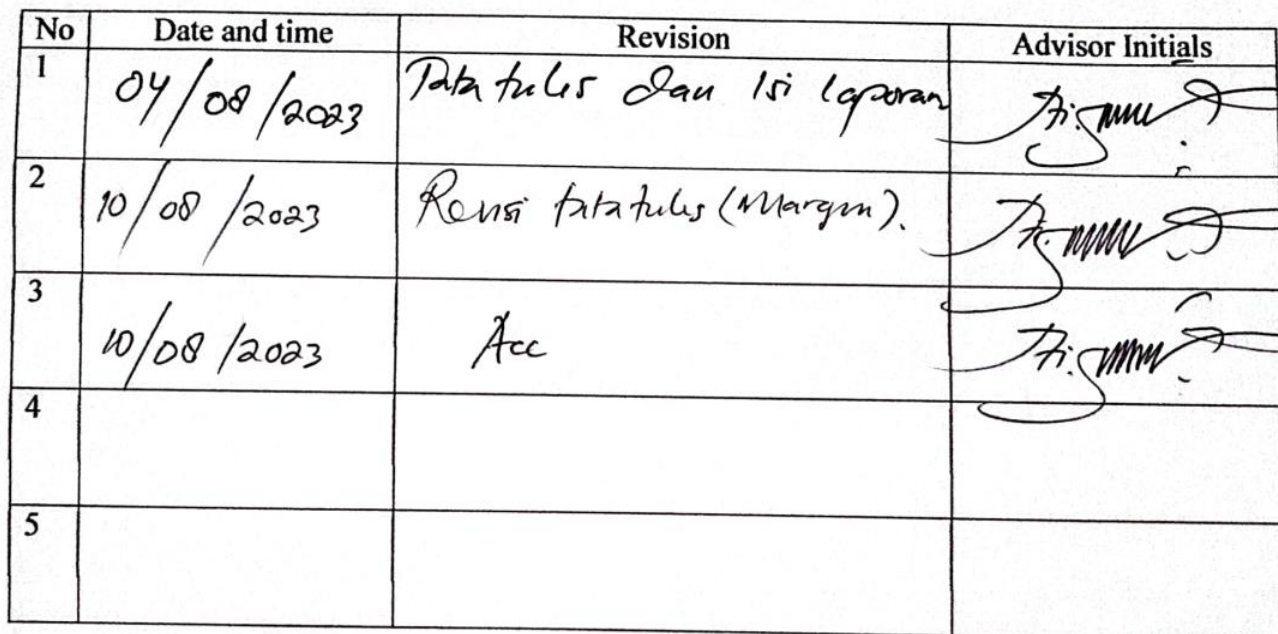 No Date and time Revision Advisor Initials
1 04/08/2023 Tata tulis dan Isi laporan
2 10/08/2023 Revisi tata tulis (Margin).
3 10/08/2023 Acc
4
5